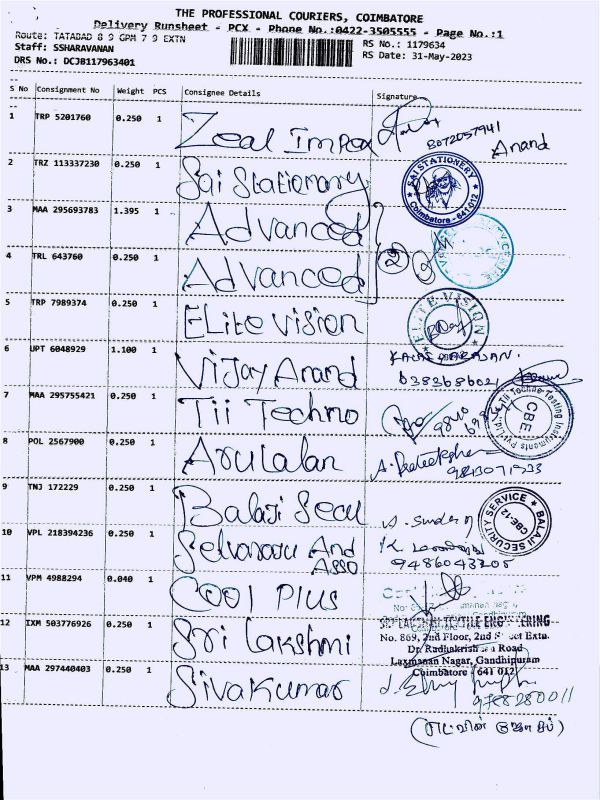 THE PROFESSIONAL COURIERS, COIMBATORE
Delivery Runsheet - PCX - Phone No.:0422-3505555 - Page No.:1
Route: TATABAD 8 9 GPM 7 9 EXTN
RS No.: 1179634
Staff: SSHARAVANAN
RS Date: 31-May-2023
DRS No.: DCJB117963401
S No Consignment No Weight PCS Consignee Details Signature
1 TRP 5201760 0.250 1 Zeal Impex 8072057941 Anand
2 TRZ 113337230 0.250 1 Sai Stationary SAI STATIONERY Coimbatore - 641 012
3 MAA 295693783 1.395 1 Advanced
4 TRL 643760 0.250 1 Advanced 2
5 TRP 7989374 0.250 1 Elite vision ELITE VISION
6 UPT 6048929 1.100 1 Vijay Anand
7 MAA 295755421 0.250 1 Tii Techno Tii Techno Testing Instruments Pvt Ltd. CBE
8 POL 2567900 0.250 1 Arulalan
9 TNJ 172229 0.250 1 Balaji Secu BALAJI SECURITY SERVICE CBE-12
10 VPL 218394236 0.250 1 And Asso 9486043205
11 VPM 4988294 0.040 1 Cool Plus
12 IXM 503776926 0.250 1 Sri Lakshmi SRI LAKSHMI TEXTILE ENGINEERING
No. 869, 2nd Floor, 2nd Street Extn.
Dr. Radhakrishnan Road
Laxmanan Nagar, Gandhipuram
Coimbatore 641 012
13 MAA 297440403 0.250 1 Sivakumar